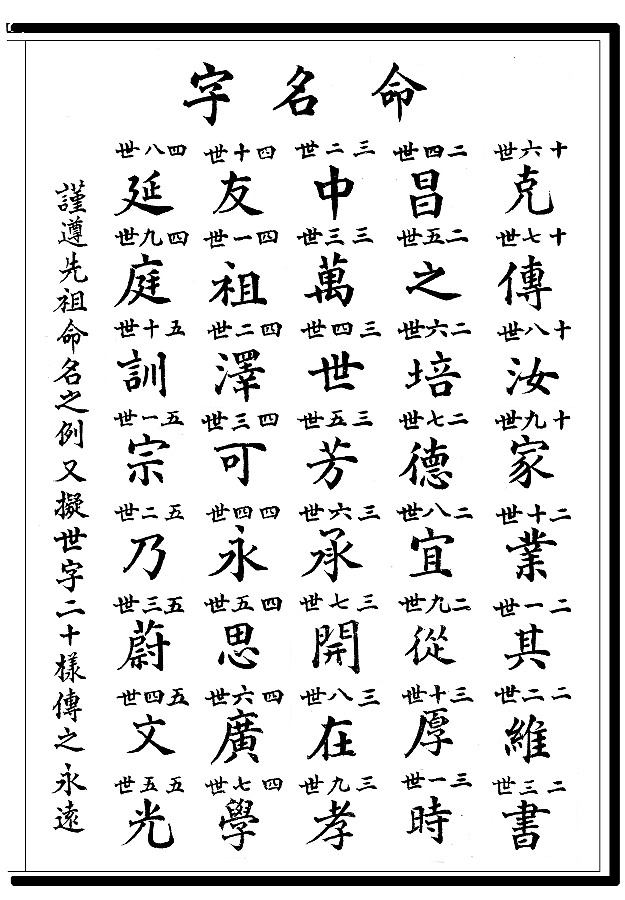 命名字
十六世 克 十七世 傳 十八世 汝 十九世 家 二十世 業 二一世 其 二二世 維 二三世 書
二四世 昌 二五世 之 二六世 培 二七世 德 二八世 宜 二九世 從 三十世 厚 三一世 時
三二世 中 三三世 萬 三四世 世 三五世 芳 三六世 承 三七世 開 三八世 在 三九世 孝
四十世 友 四一世 祖 四二世 澤 四三世 可 四四世 永 四五世 思 四六世 廣 四七世 學
四八世 延 四九世 庭 五十世 訓 五一世 宗 五二世 乃 五三世 蔚 五四世 文 五五世 光
謹遵先祖命名之例又擬世字二十樣傳之永遠